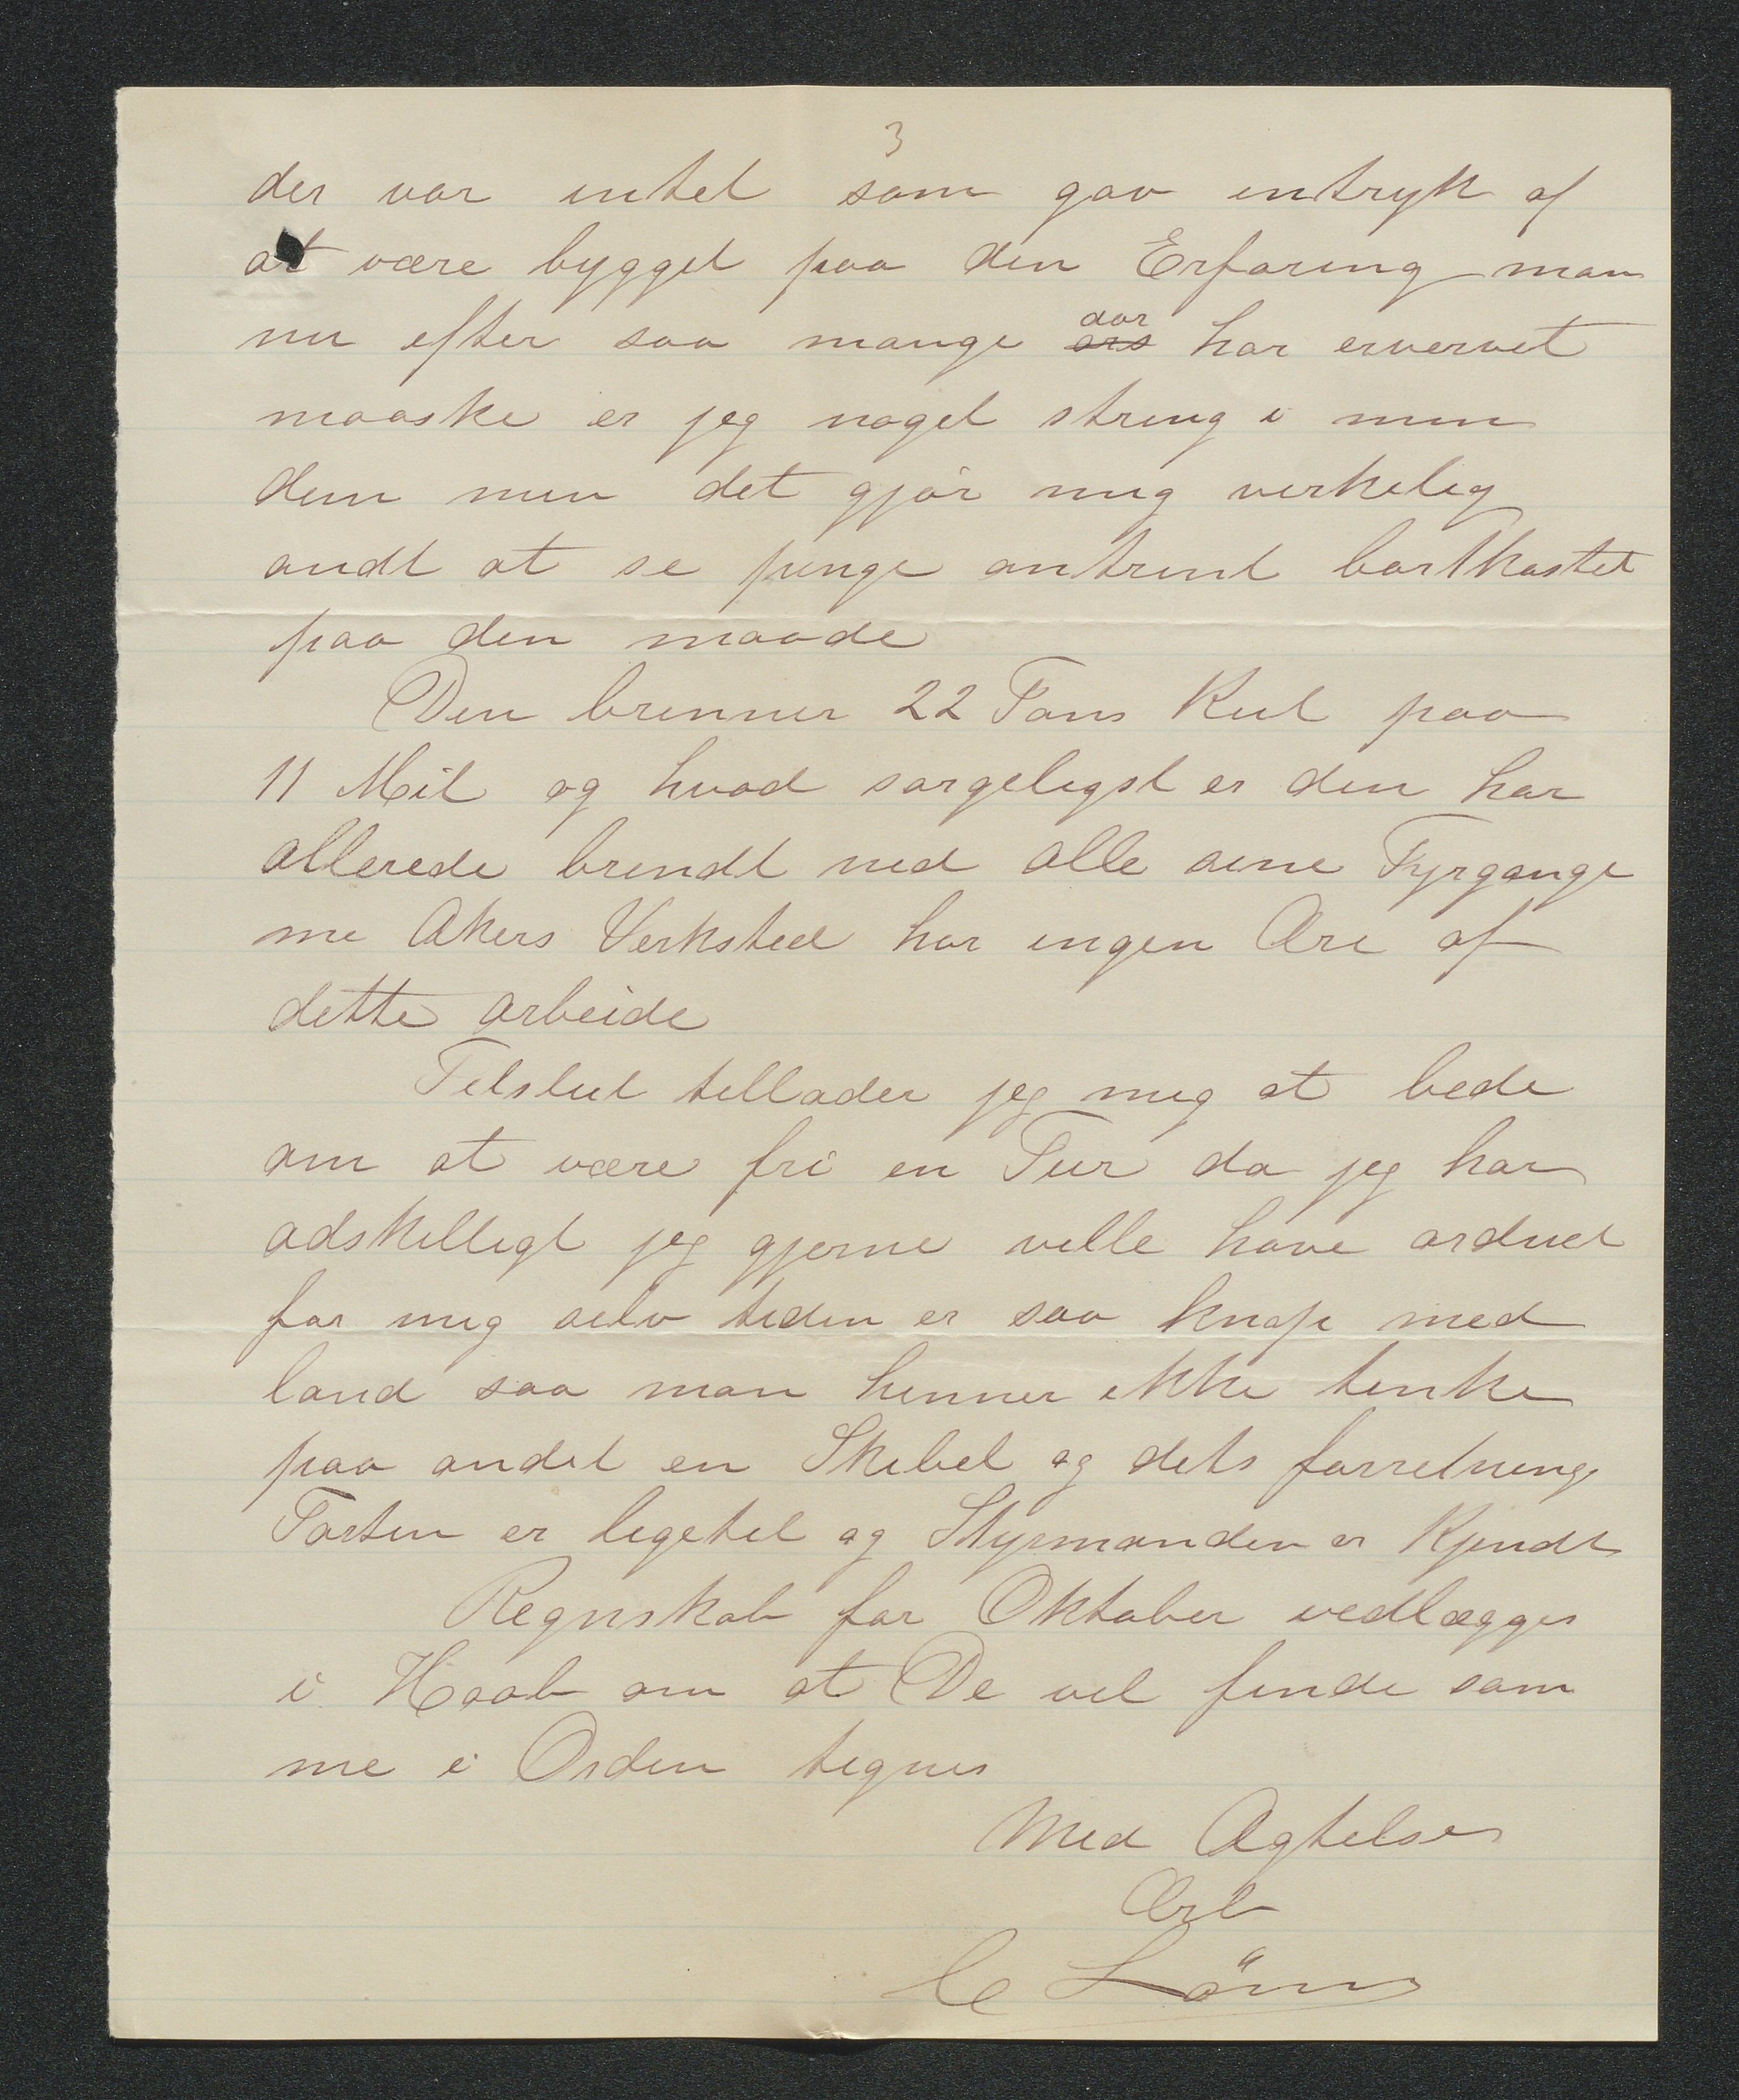 3
der var intet som gav intryk af
at være bygget paa den Erfaring man
nu efter saa mange ars aar har ervervet
maaske er jeg noget streng i min
dom men det gjör mig verkelig
ondt at se penge omtrent bortkastet
paa den maade
Den brenner 22 Tons Kul paa
11 Mil og hvad sorgeligst er den har
allerede brendt ned alle sine Fyrgange
me Akers Verksted har ingen Ære af
dette arbeide
Tilslut tillader jeg mig at bede
om at være fri en Tur da jeg har
adskilligt jeg gjerne ville have ordnet
for mig selv tiden er saa knap med
land saa man hinner ikke tenke
paa andet en Skibet og dets forretning
Farten er ligetil og Styrmanden er Kjendt
Regnskab for Oktober vedlægges
i Haab om at De vil finde sam
me i Orden tegnes
Med Agtelse
Ærb
C Löm